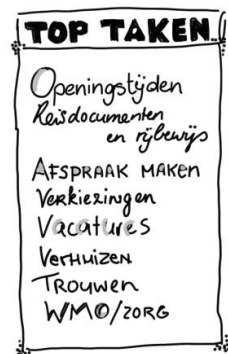 TOP TAKEN
Openingstijden
Reisdocumenten
en rijbewijs
AFSPRAAK MAKEN
Verkiezingen
Vacatures
VERHUIZEN
TROUWEN
WMO/ZORG